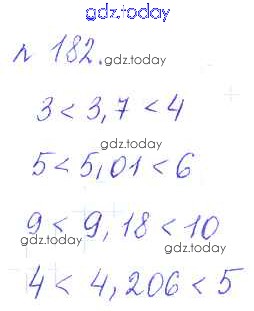 gdz.today
№ 182.
gdz.today
3 < 3,7 < 4
gdz.today
5 < 5,01 < 6
9 < 9,18 < 10
gdz.today
gdz.today
4 < 4,206 < 5